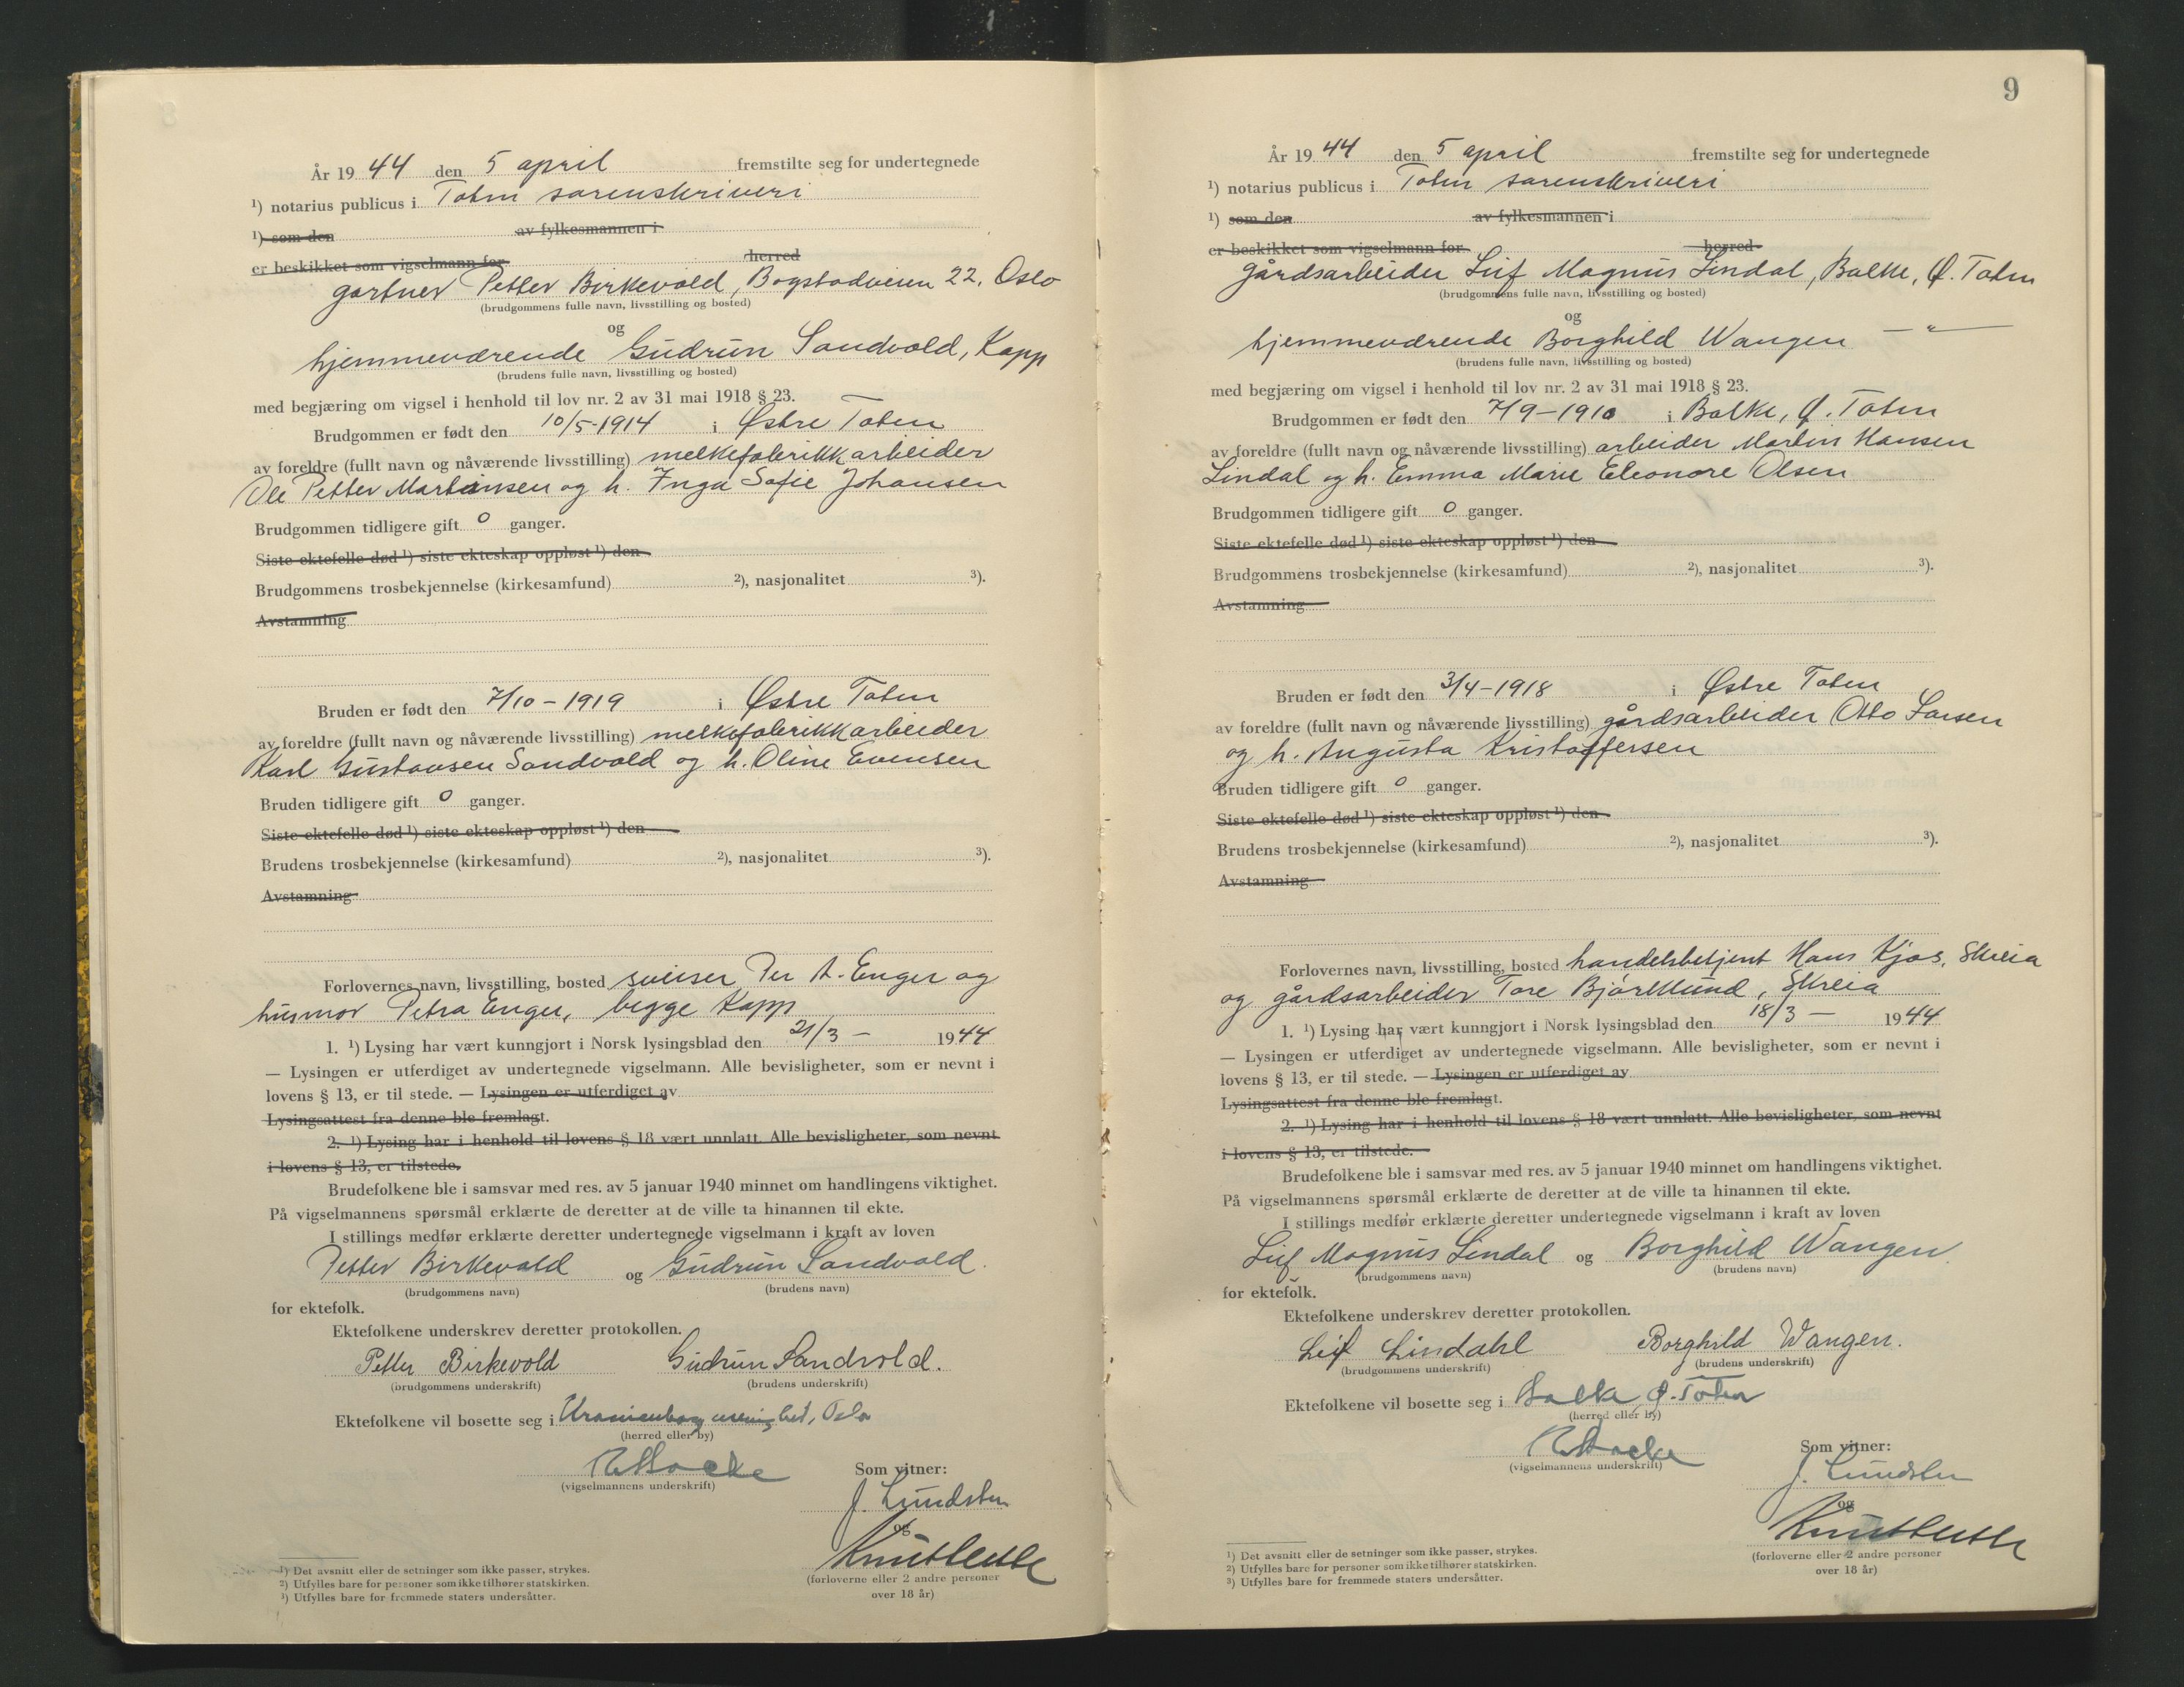 År 1944 den 5 april fremstilte seg for undertegnede
¹) notarius publicus i Toten sorenskriveri
¹) som den av fylkesmannen i
er beskikket som vigselmann for herred
gartner Petter Birkevold, Bogstadveien 22, Oslo
(brudgommens fulle navn, livsstilling og bosted)
og
hjemmeværende Gudrun Sandvold, Kapp
(brudens fulle navn, livsstilling og bosted)
med begjæring om vigsel i henhold til lov nr. 2 av 31 mai 1918 § 23.
Brudgommen er født den 10/5-1914 i Østre Toten
av foreldre (fullt navn og nåværende livsstilling) melkefabrikkarbeider
Ole Petter Martinsen og h. Inga Sofie Johansen
Brudgommen tidligere gift 0 ganger.
Siste ektefelle død ¹) siste ekteskap oppløst ¹) den
Brudgommens trosbekjennelse (kirkesamfund) ²), nasjonalitet ³).
Avstamning
Bruden er født den 7/10 - 1919 i Østre Toten
av foreldre (fullt navn og nåværende livsstilling) melkefabrikkarbeider
Karl Gustavsen Sandvold og h. Oline Evensen
Bruden tidligere gift 0 ganger.
Siste ektefelle død ¹) siste ekteskap oppløst ¹) den
Brudens trosbekjennelse (kirkesamfund) ²), nasjonalitet ³).
Avstamning
Forlovernes navn, livsstilling, bosted sveiser Per A. Enger og
husmor Petra Enger, begge Kapp
1. ¹) Lysing har vært kunngjort i Norsk lysingsblad den 21/3 - 1944
— Lysingen er utferdiget av undertegnede vigselmann. Alle bevisligheter, som er nevnt i
lovens § 13, er til stede. — Lysingen er utferdiget av
Lysingsattest fra denne ble fremlagt.
2. ¹) Lysing har i henhold til lovens § 18 vært unnlatt. Alle bevisligheter, som nevnt
i lovens § 13, er tilstede.
Brudefolkene ble i samsvar med res. av 5 januar 1940 minnet om handlingens viktighet.
På vigselmannens spørsmål erklærte de deretter at de ville ta hinannen til ekte.
I stillings medfør erklærte deretter undertegnede vigselmann i kraft av loven
Petter Birkevold og Gudrun Sandvold.
(brudgommens navn) (brudens navn)
for ektefolk.
Ektefolkene underskrev deretter protokollen.
Petter Birkevold Gudrun Sandvold.
(brudgommens underskrift) (brudens underskrift)
Ektefolkene vil bosette seg i Uranienborg menighet, Oslo
(herred eller by)
(vigselmannens underskrift)
Som vitner:
J. Lundsten
og
(forloverne eller 2 andre personer
over 18 år)
¹) Det avsnitt eller de setninger som ikke passer, strykes.
²) Utfylles bare for personer som ikke tilhører statskirken.
³) Utfylles bare for fremmede staters undersåtter.
9
År 1944 den 5 april fremstilte seg for undertegnede
¹) notarius publicus i Toten sorenskriveri
¹) som den av fylkesmannen i
er beskikket som vigselmann for herred
gårdsarbeider Leif Magnus Lindal, Balke, Ø. Toten
(brudgommens fulle navn, livsstilling og bosted)
og
hjemmeværende Borghild Wangen — " —
(brudens fulle navn, livsstilling og bosted)
med begjæring om vigsel i henhold til lov nr. 2 av 31 mai 1918 § 23.
Brudgommen er født den 7/9-1910 i Balke, Ø. Toten
av foreldre (fullt navn og nåværende livsstilling) arbeider Martin Hansen
Lindal og h. Emma Marie Eleonore Olsen
Brudgommen tidligere gift 0 ganger.
Siste ektefelle død ¹) siste ekteskap oppløst ¹) den
Brudgommens trosbekjennelse (kirkesamfund) ²), nasjonalitet ³).
Avstamning
Bruden er født den 3/4-1918 i Østre Toten
av foreldre (fullt navn og nåværende livsstilling) gårdsarbeider Otto Larsen
og h. Augusta Kristoffersen
Bruden tidligere gift 0 ganger.
Siste ektefelle død ¹) siste ekteskap oppløst ¹) den
Brudens trosbekjennelse (kirkesamfund) ²), nasjonalitet ³).
Avstamning
Forlovernes navn, livsstilling, bosted handelsbetjent Hans Kjøs, Skreia
og gårdsarbeider Tore Bjørklund, Skreia
1. ¹) Lysing har vært kunngjort i Norsk lysingsblad den 18/3 - 1944
— Lysingen er utferdiget av undertegnede vigselmann. Alle bevisligheter, som er nevnt i
lovens § 13, er til stede. — Lysingen er utferdiget av
Lysingsattest fra denne ble fremlagt.
2. ¹) Lysing har i henhold til lovens § 18 vært unnlatt. Alle bevisligheter, som nevnt
i lovens § 13, er tilstede.
Brudefolkene ble i samsvar med res. av 5 januar 1940 minnet om handlingens viktighet.
På vigselmannens spørsmål erklærte de deretter at de ville ta hinannen til ekte.
I stillings medfør erklærte deretter undertegnede vigselmann i kraft av loven
Leif Magnus Lindal og Borghild Wangen
(brudgommens navn) (brudens navn)
for ektefolk.
Ektefolkene underskrev deretter protokollen.
Leif Lindahl Borghild Wangen.
(brudgommens underskrift) (brudens underskrift)
Ektefolkene vil bosette seg i Balke, Ø. Toten
(herred eller by)
(vigselmannens underskrift)
Som vitner:
J. Lundsten
og
(forloverne eller 2 andre personer
over 18 år)
¹) Det avsnitt eller de setninger som ikke passer, strykes.
²) Utfylles bare for personer som ikke tilhører statskirken.
³) Utfylles bare for fremmede staters undersåtter.